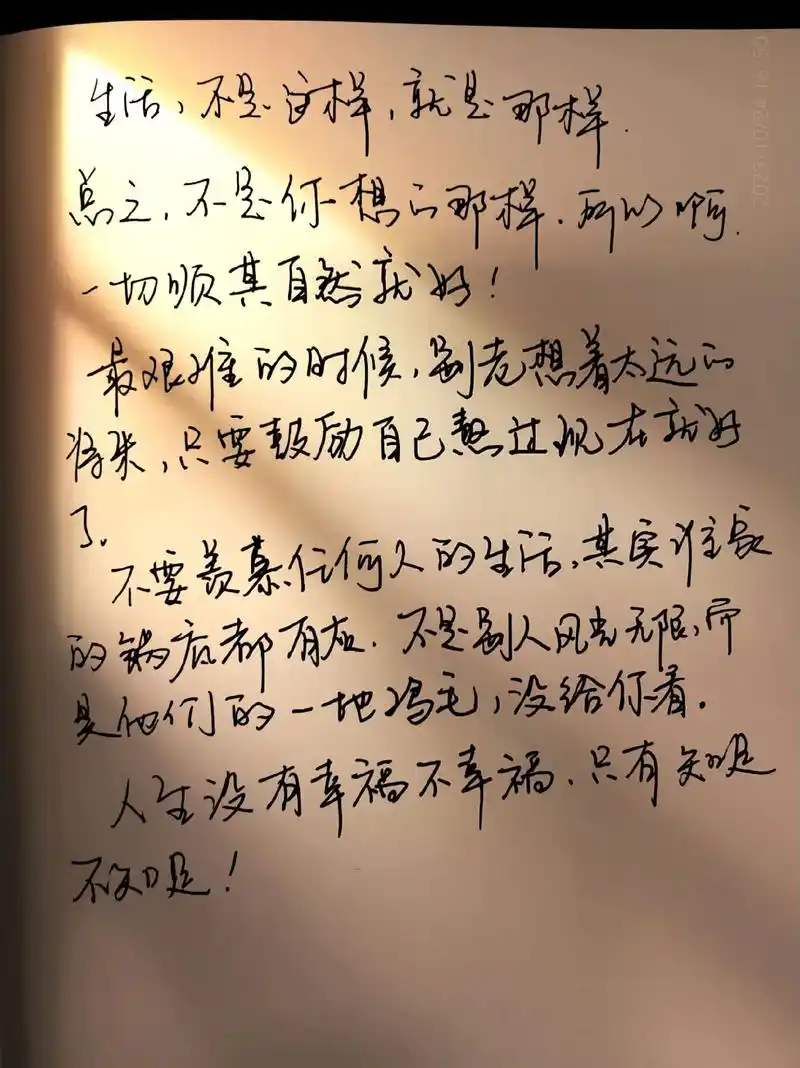 生活，不是这样，就是那样.
总之，不是你想的那样.所以啊.
一切顺其自然就好！
最艰难的时候，别老想着太远的
将来，只要鼓励自己熬过现在就好
了.
不要羡慕任何人的生活，其实谁家
的锅底都有灰.不是别人风光无限，而
是他们的一地鸡毛，没给你看.
人生没有幸福不幸福.只有知足
不知足！
2023/10/24 16:50